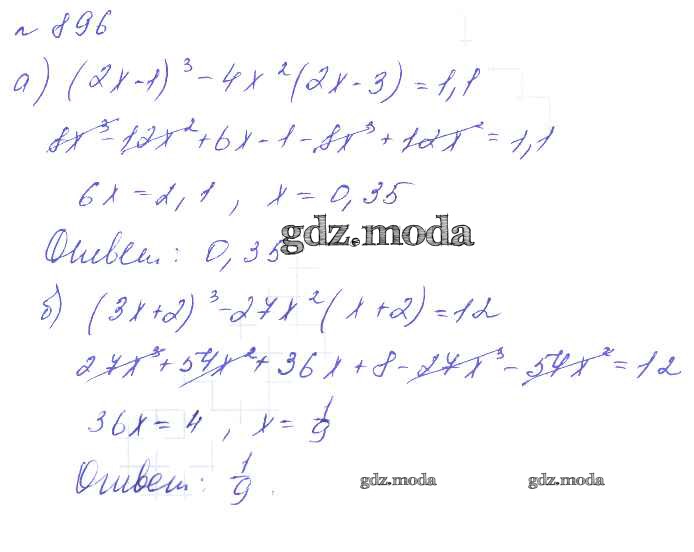 № 896
а) (2x-1)³-4x²(2x-3)=1,1
8x³-12x²+6x-1-8x³+12x²=1,1
6x=2,1, x=0,35
Ответ: 0,35
gdz.moda
б) (3x+2)³-27x²(x+2)=12
27x³+54x²+36x+8-27x³-54x²=12
36x=4, x=1/9
Ответ: 1/9.
gdz.moda gdz.moda